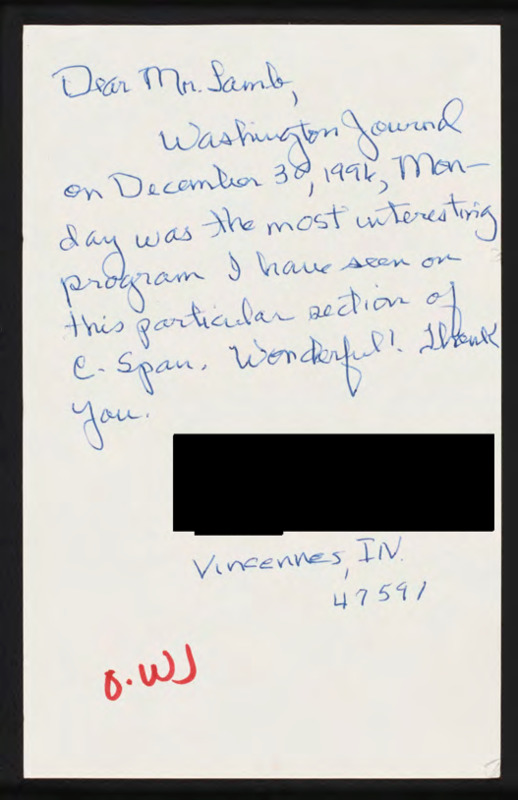 Dear Mr. Lamb,
Washington Journal
on December 30, 1996, Mon-
day was the most interesting
program I have seen on
this particular section of
C. Span. Wonderful! Thank
you.
Vincennes, IN.
47591
O.WJ